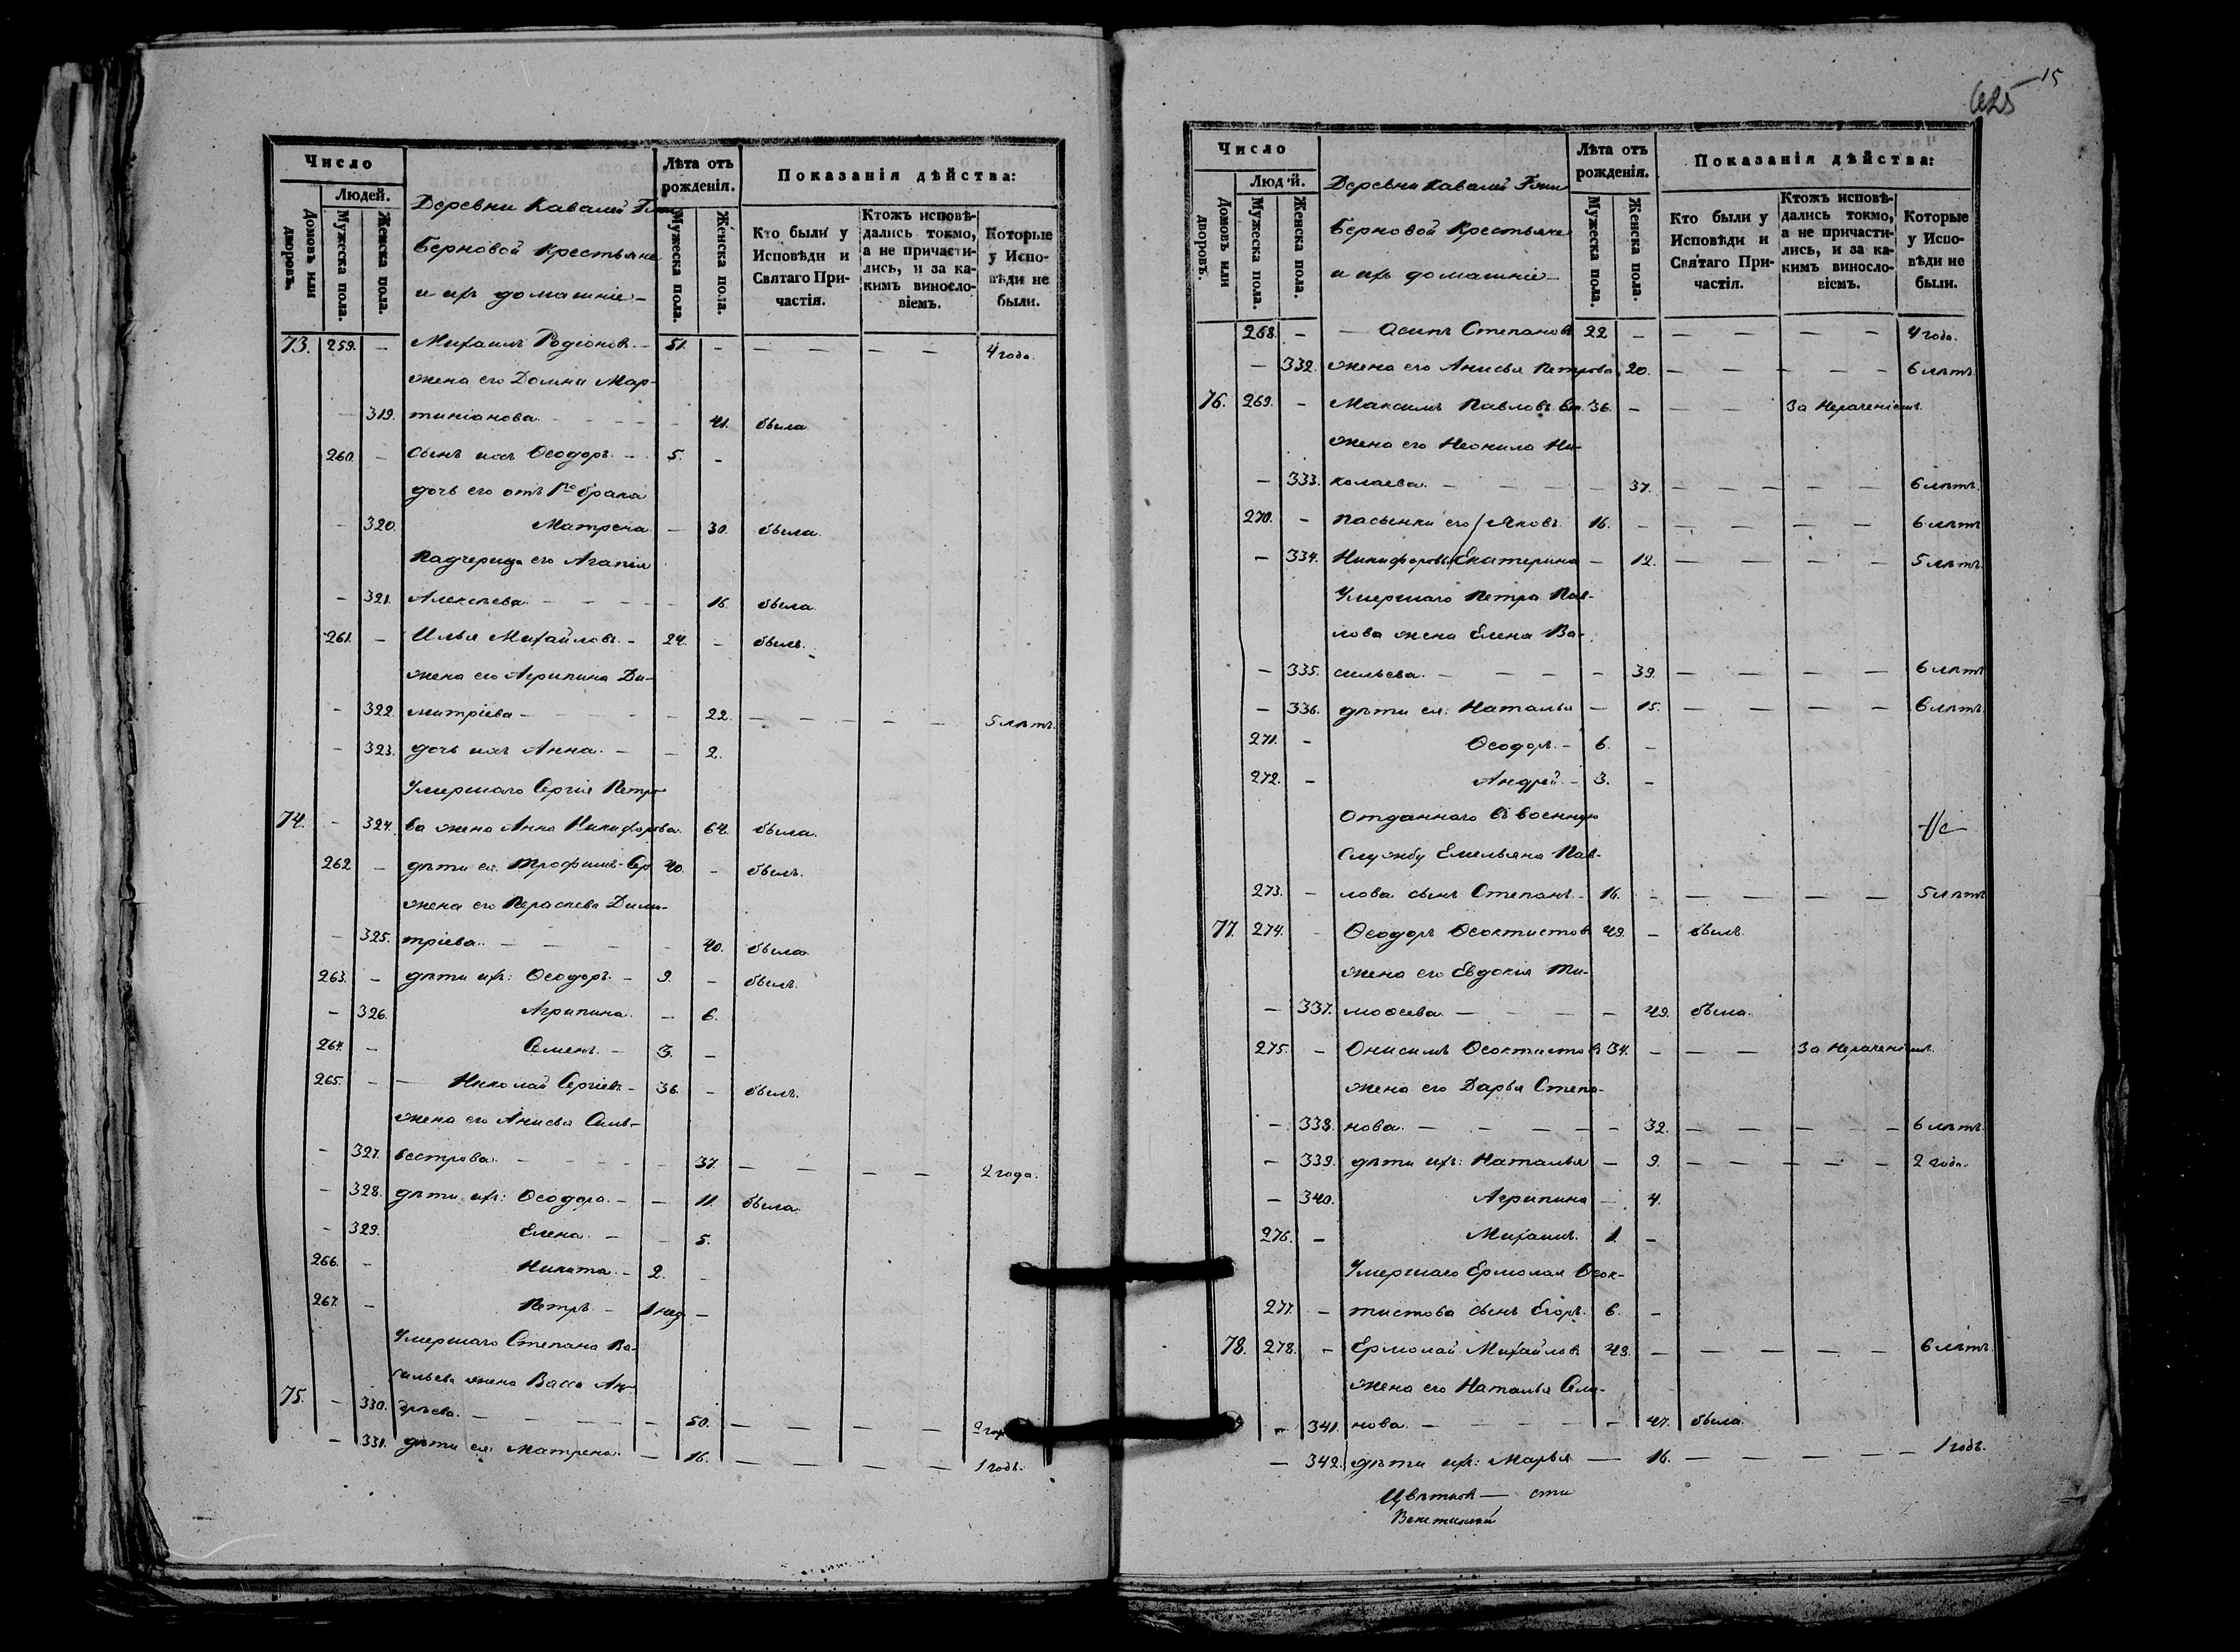 Число
Людей.
Домовъ или дворовъ.
Мужеска пола.
Женска пола.
Деревни Кавалей Гжи
Берновой крестьяне
и ихъ домашніе –
Лѣта отъ рожденія.
Мужеска пола.
Женска пола.
Показанія дѣйства:
Кто были у Исповѣди и Святаго Причастія.
Ктожъ исповѣдались токмо, а не причастились, и за какимъ винословіемъ.
Которые у Исповѣди не были.
73. 259. – Михаилъ Родіоновъ – 51. – – – – – 4 года.
жена его Домна Мар-
– 319. тиніанова – – – – 41. была
260. – сынъ ихъ Ѳеодоръ – 5. –
дочь его отъ 1го брака
– 320. Матрена – 30. была.
Падчерица его Агапія
– 321. Алексѣева – – – – 16. была.
261. – Илья Михайловъ – 24. – былъ.
жена его Агрипина Ди-
– 322. митріева – – – 22. – – – – – 5 лѣтъ.
– 323. дочь ихъ Анна. – – 2.
Умершаго Сергія Петро-
74. – 324. ва жена Анна Никифорова. 64. была.
262 – дѣти ея: Трофимъ Сер. 40. – былъ.
жена его Параскева Дими-
– 325. тріева. – – – – 40. была.
263. – дѣти ихъ: Ѳеодоръ. – 9. – былъ.
– 326. Агрипина. – 6.
264. – Семенъ. – 3. –
265. – – Николай Сергіевъ – 36. – былъ.
жена его Анисья Силь-
– 327. вестрова. – – – – 37. – – – – 2 года.
– 328. дѣти ихъ: Ѳеодора. – – 11. была.
– 329. Елена. – – 5.
266. – Никита. – 2. –
267. – Петръ – 1 нед. –
Умершаго Степана Ва-
сильева жена Васса Ан-
75. – 330. дрѣева. – – – – – 50. – – – – 2 года
– 331. дѣти ея: Матрена. – 16. – – – – – 1 годъ.
15
625
Число
Людей.
Домовъ или дворовъ.
Мужеска пола.
Женска пола.
Деревни Кавалей Гжи
Берновой крестьяне
и ихъ домашніе –
Лѣта отъ рожденія.
Мужеска пола.
Женска пола.
Показанія дѣйства:
Кто были у Исповѣди и Святаго Причастія.
Ктожъ исповѣдались токмо, а не причастились, и за какимъ винословіемъ.
Которые у Исповѣди не были.
268. – – Осипъ Степановъ 22 – – – – – 4 года.
– 332. жена его Анисья Петрова. 20. – – – – – 6 лѣтъ.
76. 269. – Максимъ Павловъ 36. – – – За Нераченіемъ.
жена его Неонила Ни-
– 333. колаева. – – – – 37. – – – – – 6 лѣтъ.
270. – пасынки его Яковъ 16. – – – – – 6 лѣтъ
– 334. Никифоровы Екатерина – 12. – – – – 5 лѣтъ.
Умершаго Петра Пав-
лова жена Елена Ва-
– 335. сильева. – – – – 39. – – – – 6 лѣтъ
– 336. дѣти ея: Наталья – 15. – – – – 6 лѣтъ.
271. – Ѳеодоръ. – 6. –
272. – Андрей. – 3. –
Отданнаго въ военную
Службу Емельяна Пав-
273. – лова сынъ Степанъ. – 16. – – – – – 5 лѣтъ
77. 274. – Ѳеодоръ Ѳеоктистовъ 49. – былъ.
жена его Евдокія Ти-
– 337. моѳеева. – – – – 49. была.
275. – Онисимъ Ѳеоктистовъ 34. – – – За Нераченіемъ.
жена его Дарья Степа-
– 338. нова. – – – – – 32. – – – – – 6 лѣтъ.
– 339. дѣти ихъ: Наталья – 9. – – – – – 2 года.
– 340. Агрипина – 4.
276. – Михаилъ. 1. –
Умершаго Ермолая Ѳеок-
277. – тистова сынъ Егоръ. 6. –
78. 278. – Ермолай Михайловъ 48. – – – – – 6 лѣтъ.
жена его Наталья Семе-
– 341. нова. – – – – – 47. была.
– 342. дѣти ихъ: Марья – 16. – – – – – 1 годъ.